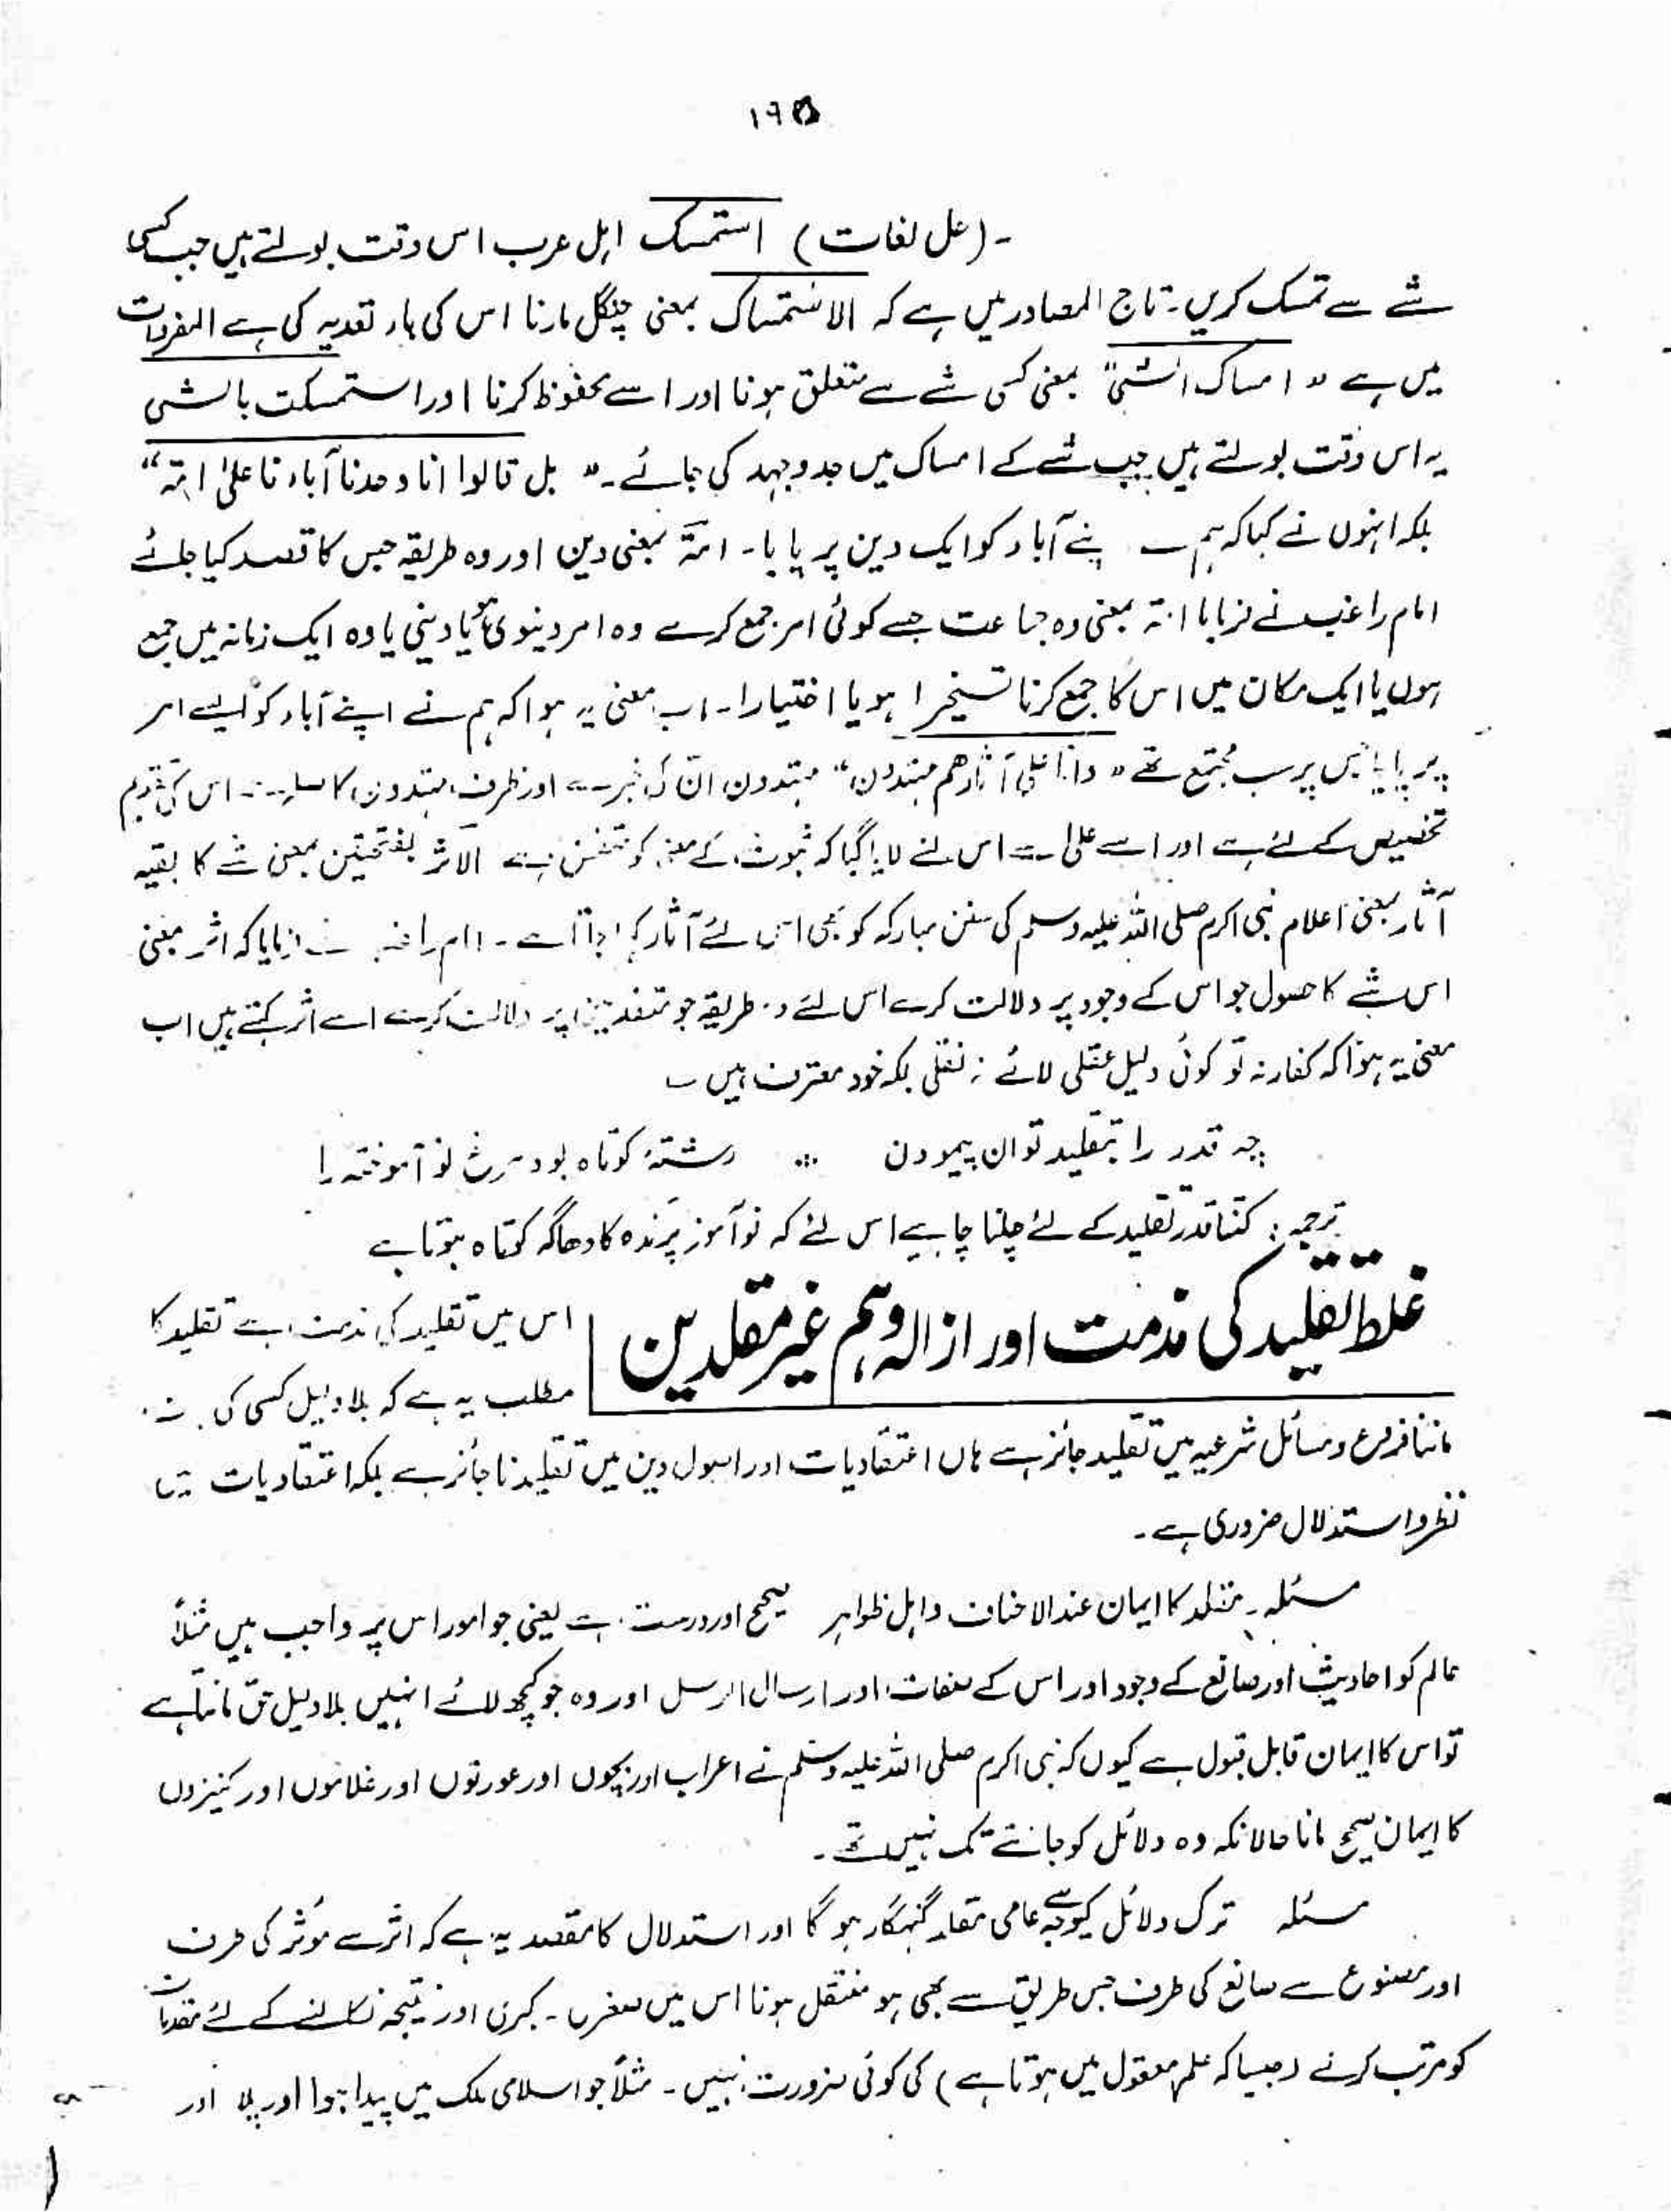 ۱۹۵
۔ (حل لغات) استمسک اہل عرب اس وقت بولتے ہیں جب کسی
شے سے تمسک کریں۔ تاج المصادر میں ہے کہ الاستمساک بمعنی چنگل مارنا اس کی باء تعدیہ کی ہے المفردات
میں ہے " امساک الشئ" بمعنی کسی شے سے متعلق ہونا اور اسے محفوظ کرنا اور استمسکت بالشی
یہ اس وقت بولتے ہیں جب شے کے امساک میں جد و جہد کی جائے۔ " بل قالوا انا وجدنا آباءنا علیٰ امۃ"
بلکہ انہوں نے کہا کہ ہم نے اپنے آباء کو ایک دین پر پایا۔ امۃ بمعنی دین اور وہ طریقہ جس کا قصد کیا جائے
امام راغب نے فرمایا امۃ بمعنی وہ جماعت جسے کوئی امر جمع کرے وہ امر دینوی ہو یا دینی یا وہ ایک زمانہ میں جمع
ہوں یا ایک مکان میں اس کا جمع کرنا تسخیرا ہو یا اختیارا۔ اب معنی یہ ہوا کہ ہم نے اپنے آباء کو ایسے امر
پر پایا جس پر سب مجتمع تھے " وانا علی آثارھم مہتدون" مہتدون ان کی خبر ہے اور ظرف مہتدون کا صلہ ہے اس کی تقدیم
تخصیص کے لئے ہے اور اسے علیٰ سے اس لئے لایا گیا کہ ثبوت کے معنی کو متضمن ہے الاثر بفتحتین بمعنی شے کا بقیہ
آثار بمعنی اعلام نبی اکرم صلی اللہ علیہ وسلم کی سنن مبارکہ کو بھی اسی لئے آثار کہا جاتا ہے۔ امام راغب نے فرمایا کہ اثر بمعنی
اس شے کا حصول جو اس کے وجود پر دلالت کرے اس لئے وہ طریقہ جو متقدمین پر دلالت کرے اسے اثر کہتے ہیں اب
معنی یہ ہوا کہ کفار نہ تو کوئی دلیل عقلی لائے نہ نقلی بلکہ خود معترف ہیں ؎
چہ قدر را بتقلید توان پیمودن ... رشتۂ کوتاہ بود مرغ نو آموختہ را
ترجمہ: کتنا قدر تقلید کے لئے چلنا چاہیے اس لئے کہ نو آموز پرندہ کا دھاگہ کوتاہ ہوتا ہے
غلط تقلید کی مذمت اور ازالہ وہم غیر مقلدین
اس میں تقلید کی مذمت ہے تقلید کا
مطلب یہ ہے کہ بلا دلیل کسی کی
ماننا فروع و مسائل شرعیہ میں تقلید جائز ہے ہاں اعتقادیات اور اصول دین میں تقلید ناجائز ہے بلکہ اعتقادیات میں
نظر و استدلال ضروری ہے۔
مسئلہ۔ مقلد کا ایمان عند الاحناف و اہل ظواہر صحیح اور درست ہے یعنی جو امور اس پر واجب ہیں مثلاً
عالم کو احادیث اور صانع کے وجود اور اس کے صفات اور ارسال الرسل اور وہ جو کچھ لائے انہیں بلا دلیل حق مانتا ہے
تو اس کا ایمان قابل قبول ہے کیوں کہ نبی اکرم صلی اللہ علیہ وسلم نے اعراب اور بچوں اور عورتوں اور غلاموں اور کنیزوں
کا ایمان صحیح مانا حالانکہ وہ دلائل کو جانتے تک نہیں تھے۔
مسئلہ ترک دلائل کیوجہ سے عامی مقلد گنہگار ہو گا اور استدلال کا مقصد یہ ہے کہ اثر سے مؤثر کی طرف
اور مصنوع سے صانع کی طرف جس طریق سے بھی ہو منتقل ہونا اس میں صغریٰ۔ کبریٰ اور نتیجہ نکالنے کے لئے مقدمات
کو مرتب کرنے (جیسا کہ علم معقول میں ہوتا ہے) کی کوئی ضرورت نہیں۔ مثلاً جو اسلامی ملک میں پیدا ہوا اور پلا اور